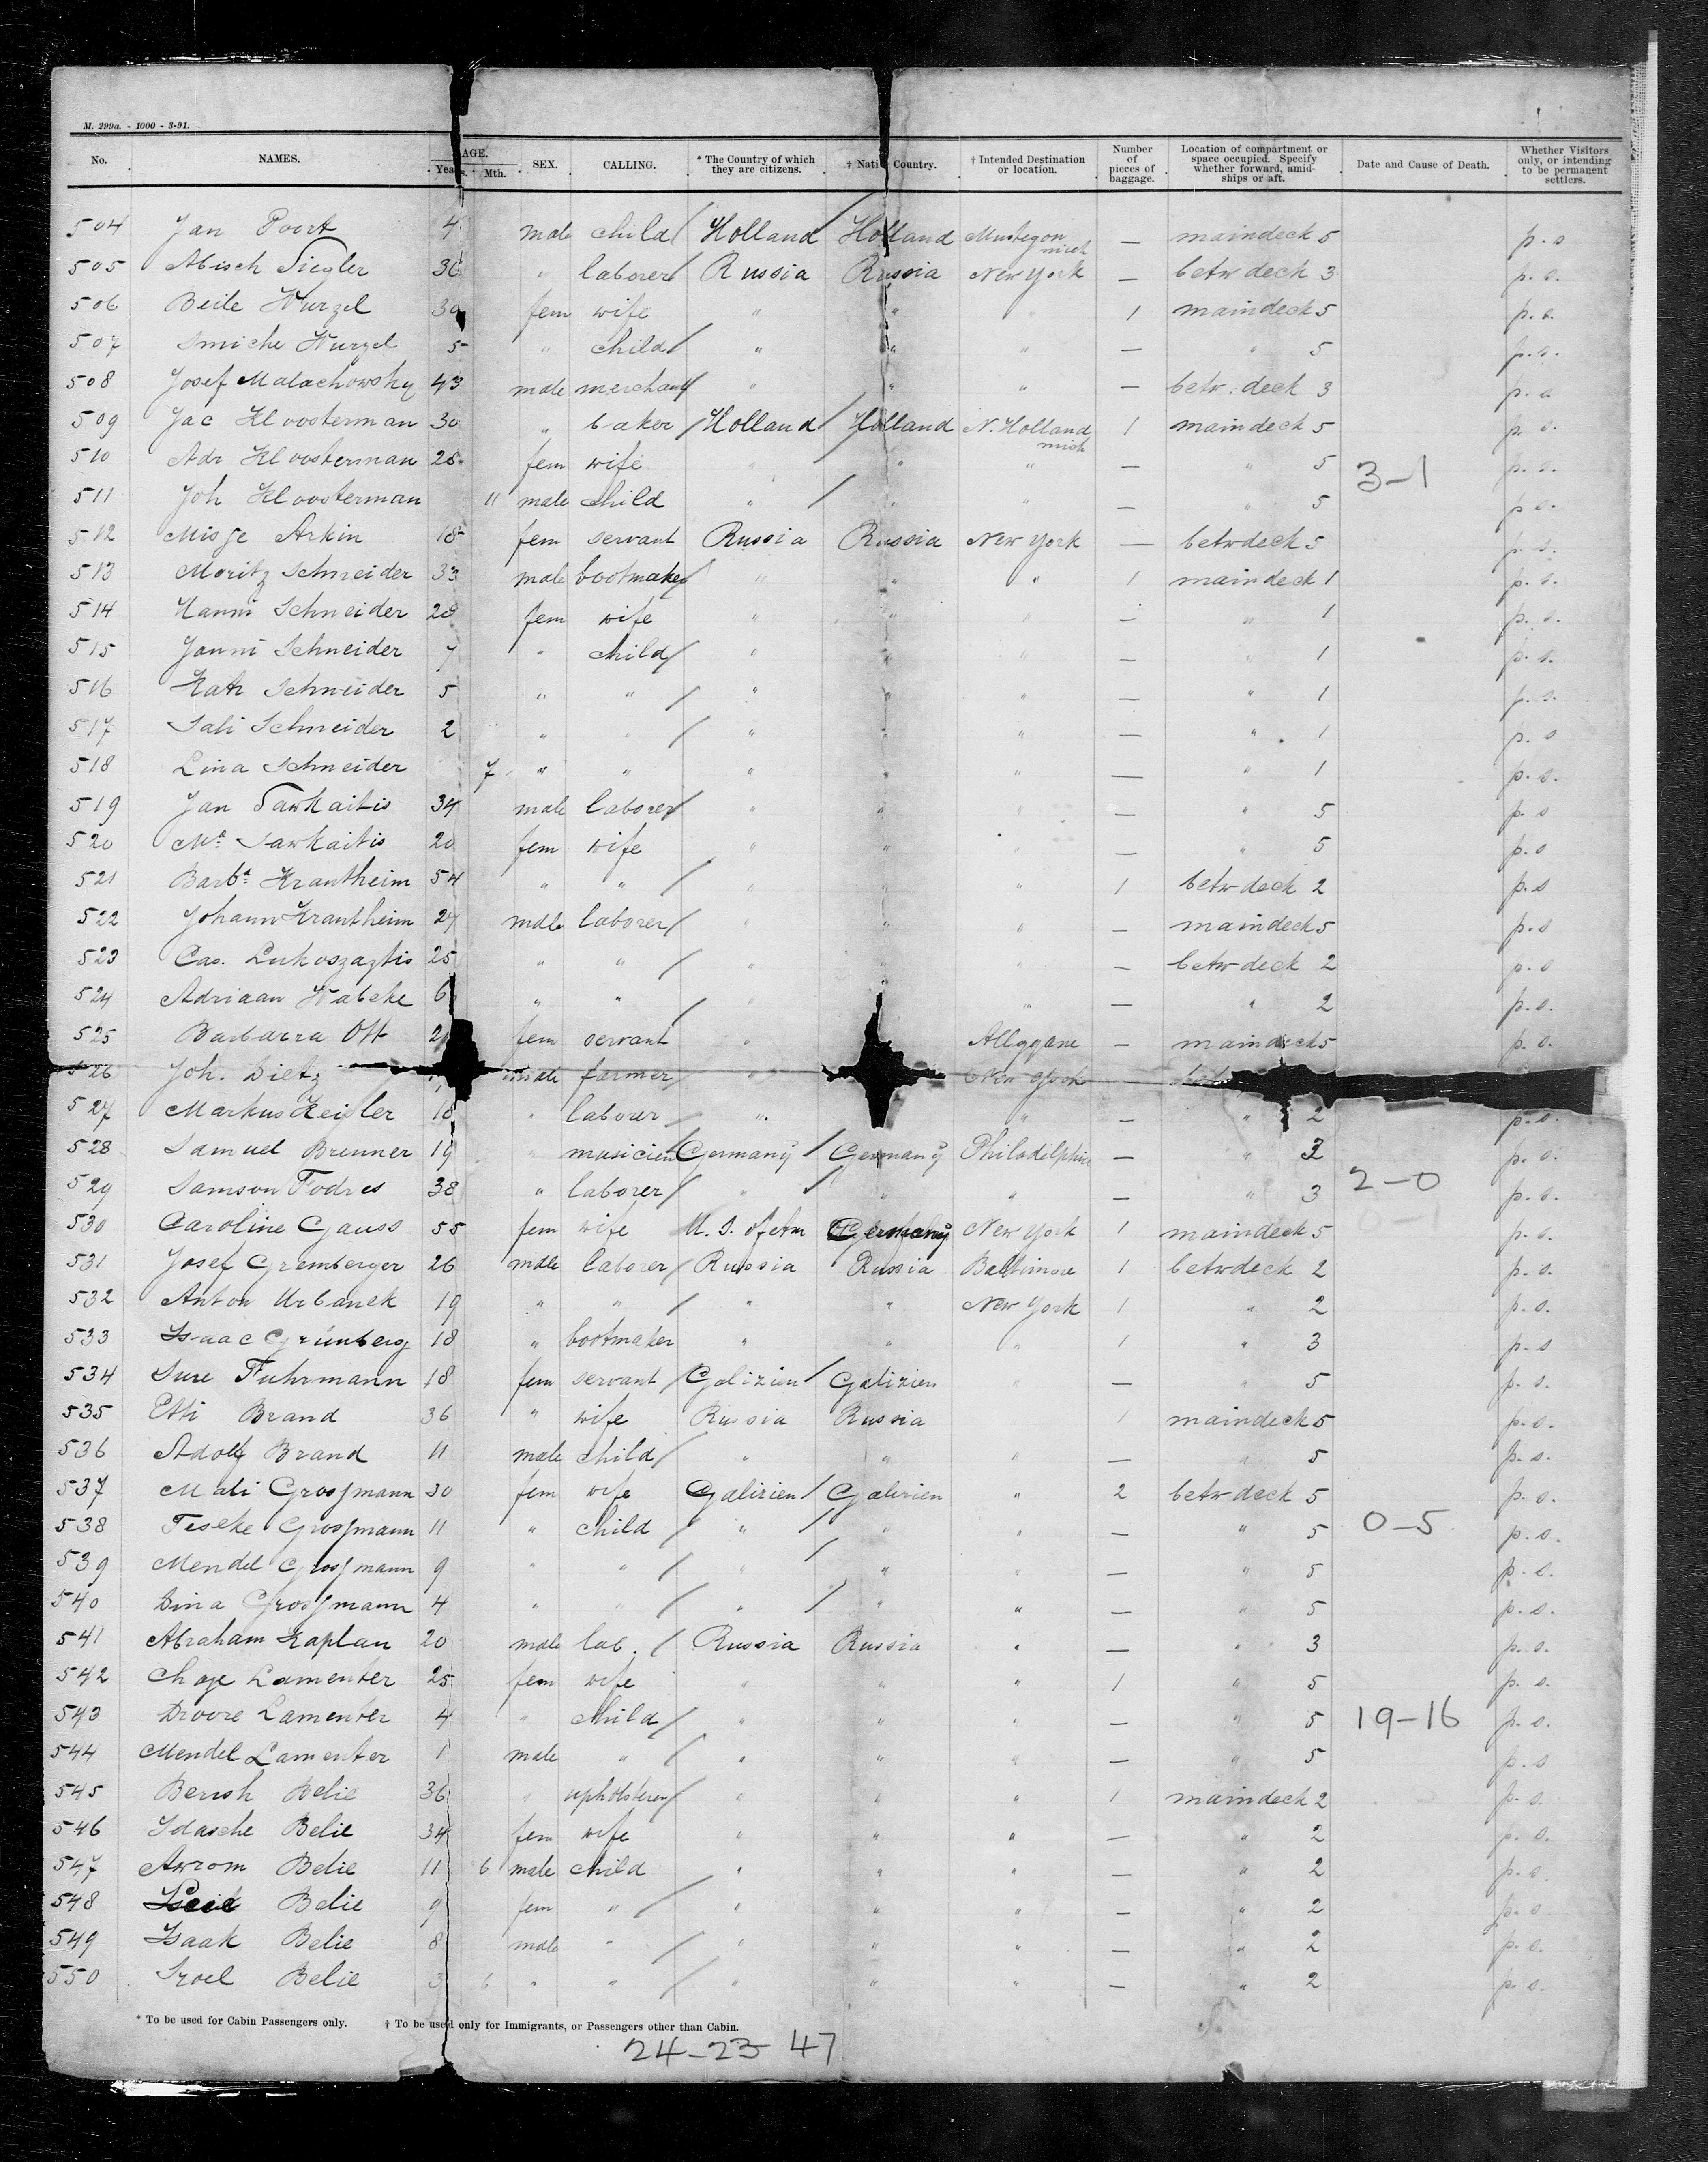 M. 299a. - 1000 - 3-91.
No. NAMES. AGE. Years. Mth. SEX. CALLING. * The Country of which they are citizens. † Native Country. † Intended Destination or location. Number of pieces of baggage. Location of compartment or space occupied. Specify whether forward, amidships or aft. Date and Cause of Death. Whether Visitors only, or intending to be permanent settlers.
504 Jan Poort 4 male child Holland Holland Muskegon mich — maindeck 5 p. s
505 Abisch Siegler 36 " laborer Russia Russia New York — betw deck 3 p. s.
506 Beile Wurzel 30 fem wife " " " 1 maindeck 5 p. s.
507 Smiche Wurzel 5 " child " " " — " 5 p. s.
508 Josef Malachowsky 43 male merchant " " " — betw. deck 3 p. s
509 Jac Kloosterman 30 " baker Holland Holland N. Holland mich 1 maindeck 5 p. s.
510 Adr Kloosterman 28 fem wife " " " — " 5 p. s.
3-1
511 Joh Kloosterman 11 male child " " " — " 5 p. s.
512 Misge Arkin 18 fem servant Russia Russia New York — betwdeck 5 p. s.
513 Moritz Schneider 33 male bootmaker " " " 1 maindeck 1 p. s.
514 Hanni Schneider 28 fem wife " " " — " 1 p. s.
515 Janni Schneider 7 " child " " " — " 1 p. s.
516 Kath Schneider 5 " " " " " — " 1 p. s.
517 Sali Schneider 2 " " " " " — " 1 p. s
518 Lina Schneider 7 " " " " " — " 1 p. s.
519 Jan Sawkaitis 34 male laborer " " " — " 5 p. s
520 Ma Sawkaitis 20 fem wife " " " — " 5 p. s
521 Barba Krantheim 54 " " " " " 1 betwdeck 2 p. s
522 Johann Krantheim 24 male laborer " " " — maindeck 5 p. s
523 Cas. Lukoszaztis 25 " " " " " — betwdeck 2 p. s
524 Adriaan Wabeke 6 " " " " — " 2 p. s.
525 Barbarra Ott 2 fem servant " Alleggane — maindeck 5 p. s.
526 Joh. Dietz male farmer " New York —
527 Markus Keisler 18 " laborer " " — " 2 p. s.
528 Samuel Brenner 19 " musicien Germany Germany Philadelphia — " 3 p. s.
529 Samson Fodres 38 " laborer " " " — " 3 p. s.
2-0
0-1
530 Caroline Gauss 55 fem wife U. S. of Am Germany New York 1 maindeck 5 p. s.
531 Josef Gremberger 26 male laborer Russia Russia Baltimore 1 betwdeck 2 p. s.
532 Anton Urbanek 19 " " " " New York 1 " 2 p. s.
533 Isaac Grünberg 18 " bootmaker " " " 1 " 3 p. s
534 Sure Fuhrmann 18 fem servant Galizien Galizien " — " 5 p. s.
535 Etti Brand 36 " wife Russia Russia 1 maindeck 5 p. s.
536 Adolf Brand 11 male child " " " — " 5 p. s.
537 Mali Grossmann 30 fem wife Galizien Galizien " 2 betwdeck 5 p. s.
538 Teseke Grossmann 11 " child " " " — " 5 p. s.
0-5
539 Mendel Grossmann 9 " " " " " — " 5 p. s.
540 Dina Grossmann 4 " " " " " — " 5 p. s.
541 Abraham Kaplan 20 male lab. Russia Russia " — " 3 p. s.
542 Chaje Lamenter 25 fem wife " " " 1 " 5 p. s.
543 Dwore Lamenter 4 " child " " " — " 5 p. s.
19-16
544 Mendel Lamenter 1 male " " " " — " 5 p. s
545 Berish Belie 36 " upholsterer " " " 1 maindeck 2 p. s.
546 Idasche Belie 34 fem wife " " " — " 2 p. s.
547 Awrom Belie 11 6 male child " " " — " 2 p. s.
548 Belie 9 fem " " " " — " 2 p. s
549 Isaak Belie 8 male " " " " — " 2 p. s.
550 Sroel Belie 3 6 " " " " " — " 2 p. s.
* To be used for Cabin Passengers only. † To be used only for Immigrants, or Passengers other than Cabin.
24-23 47